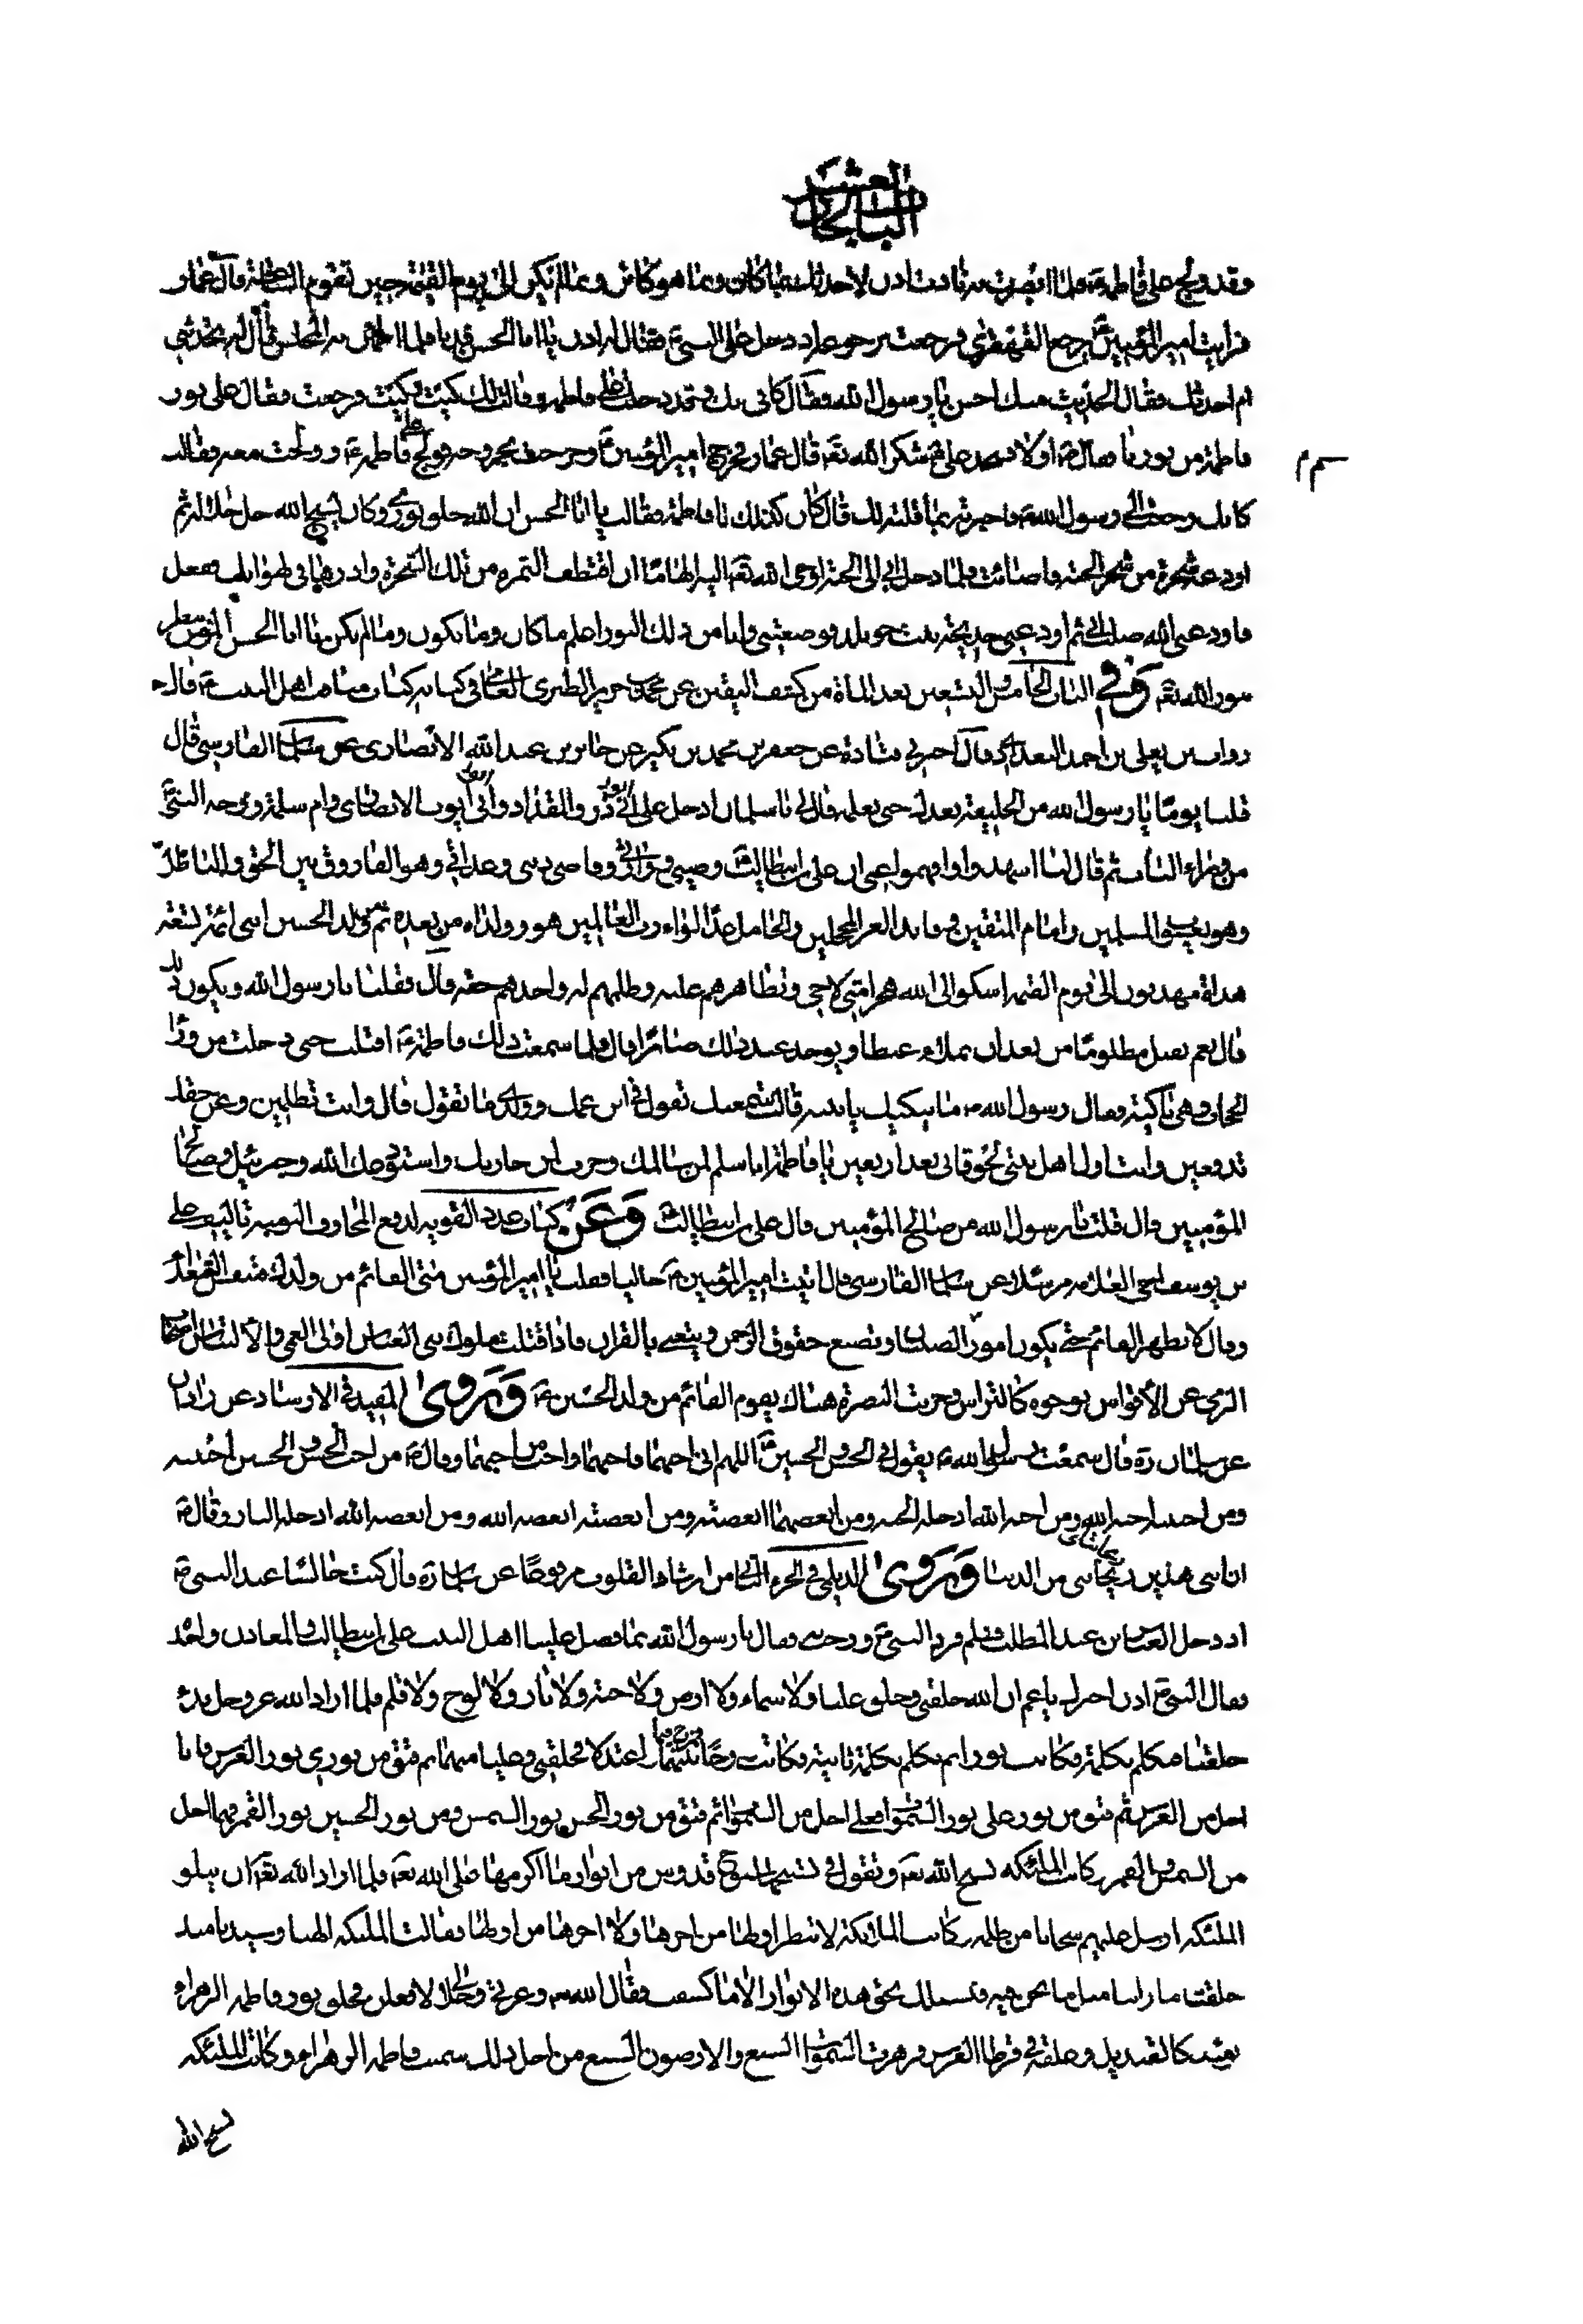 الباب الحادي عشر
وقد ولج على فاطمة ع فلما ابصرت به نادت ادن لاحدثك بما كان وبما هو كائن وبما لم يكن الى يوم القيمة حين تقوم الساعة قال عمار
فرايت امير المؤمنين ع يرجع القهقرى فرجعت برجوعه اذ دخل على النبي ص فقال له ادن يا ابا الحسن فدنا فلما اطمئن به المجلس قال له تحدثني
ام احدثك فقال الحديث منك احسن يا رسول الله فقال كاني بك وقد دخلت على فاطمة وقالت لك كيت وكيت فرجعت فقال علي نور
فاطمة من نورنا فقال ص اولا تعلم فسجد علي ع شكرا لله تعه قال عمار فخرج امير المؤمنين ع وخرجت بخروجه فولج على فاطمة ع وولجت معه فقالت
كانك رجعت الى رسول الله ص فاخبرته بما قلته لك قال كان كذلك يا فاطمة فقالت يا ابا الحسن ان الله خلق نوري وكان يسبح الله جل جلاله ثم
اودعه شجرة من شجر الجنة فاضائت فلما دخل ابي الى الجنة اوحى الله تعه اليه الهاما ان اقتطف الثمرة من تلك الشجرة وادرها في لهواتك ففعل
فاودعني الله صلب ابي ثم اودعني خديجة بنت خويلد فوضعتني وانا من ذلك النور اعلم ما كان وما يكون وما لم يكن يا ابا الحسن المؤمن ينظر
بنور الله تعه وفي الباب الخامس والتسعين بعد المأة من كشف اليقين عن محمد بن جرير الطبري العامي في كتابه كتاب مناقب اهل البيت ع قال
بن يعلى بن احمد البغدادي قال اخبرني قتادة عن جعفر بن محمد بن بكير عن جابر بن عبد الله الانصاري عن سلمان الفارسي قال
قلنا يوما يا رسول الله من الخليفة بعدك حتى نعلمه قال لي يا سلمان ادخل علي ابا ذر والمقداد وابا ايوب الانصاري وام سلمة زوجة النبي ص
من وراء الباب ثم قال لنا اشهدوا وافهموا عني ان علي بن ابيطالب ع وصيي ووارثي وقاضي ديني وعداتي وهو الفاروق بين الحق والباطل
وهو يعسوب المسلمين وامام المتقين وقائد الغر المحجلين والحامل غدا لواء رب العالمين هو وولداه من بعده ثم من ولد الحسين ابني ائمة تسعة
هداة مهديون الى يوم القيمة اشكو الى الله جحد امتي لاخي وتظاهرهم عليه وظلمهم له واخذهم حقه قال فقلنا يا رسول الله ويكون ذلك
قال نعم يقتل مظلوما من بعد ان يملاء غيظا ويوجد عند ذلك صابرا قال فلما سمعت ذلك فاطمة ع اقبلت حتى دخلت من وراء
الحجاب وهي باكية فقال رسول الله ص ما يبكيك يا بنية قالت سمعتك تقول في ابن عمك وولدي ما تقول قال وانت تظلمين وعن حقك
تدفعين وانت اول اهل بيتي لحوقا بي بعد اربعين يا فاطمة انا سلم لمن سالمك وحرب لمن حاربك واستودعك الله وجبرئيل وصالح
المؤمنين قال قلت يا رسول الله من صالح المؤمنين قال علي بن ابيطالب ع وعن كتاب عدد القوية لدفع المخاوف اليومية تاليف علي
بن يوسف اخي العلامة مرسلا عن سلمان الفارسي قال اتيت امير المؤمنين ع خاليا فقلت يا امير المؤمنين متى القائم من ولدك فتنفس الصعداء
وقال لا يظهر القائم حتى يكون امور الصبيان وتضيع حقوق الرحمن ويتغنى بالقران فاذا قتلت ملوك بني العباس اولى العمى والالتباس اصحاب
الرمى عن الاقواس بوجوه كالتراس وخربت البصرة هناك يقوم القائم من ولد الحسين ع وروى المفيد في الارشاد عن زاذان
عن سلمان ره قال سمعت رسول الله ص يقول في الحسن والحسين ع اللهم اني احبهما فاحبهما واحب من احبهما وقال ص من احب الحسن والحسين احببته
ومن احببته احبه الله ومن احبه الله ادخله الجنة ومن ابغضهما ابغضته ومن ابغضته ابغضه الله ومن ابغضه الله ادخله النار وقال ص
ان ابني هذين ريحانتاي من الدنيا وروى الديلمي في الجزء الثاني من ارشاد القلوب مرفوعا عن سلمان ره قال كنت جالسا عند النبي ص
اذ دخل العباس بن عبد المطلب فسلم فرد النبي ص ورحب به فقال يا رسول الله بما فضل علينا اهل البيت علي بن ابيطالب ع والمعادن واحدة
فقال النبي ص اذن اخبرك يا عم ان الله خلقني وخلق عليا ولا سماء ولا ارض ولا جنة ولا نار ولا لوح ولا قلم فلما اراد الله عز وجل بدء
خلقنا تكلم بكلمة فكانت نورا ثم تكلم بكلمة ثانية فكانت روحا فمزج فيما بينهما فاعتدلا فخلقني وعليا منهما ثم فتق من نوري نور العرش فانا
اجل من العرش ثم فتق من نور علي نور السموات فعلي اجل من السموات ثم فتق من نور الحسن نور الشمس ومن نور الحسين نور القمر فهما اجل
من الشمس والقمر وكانت الملئكة تسبح الله تعه وتقول في تسبيحها سبوح قدوس من انوار ما اكرمها على الله تعه فلما اراد الله تعه ان يبلو
الملئكة ارسل عليهم سحابا من ظلمة وكانت الملائكة لا تنظر اولها من اخرها ولا اخرها من اولها فقالت الملئكة الهنا وسيدنا منذ
خلقتنا ما راينا مثل ما نحن فيه فنسئلك بحق هذه الانوار الا ما كشفت فقال الله وعزتي وجلالي لافعلن فخلق نور فاطمة الزهراء
يومئذ كالقنديل وعلقه في قرط العرش فزهرت السموات السبع والارضون السبع من اجل ذلك سميت فاطمة الزهراء وكانت الملئكة
تسبح الله